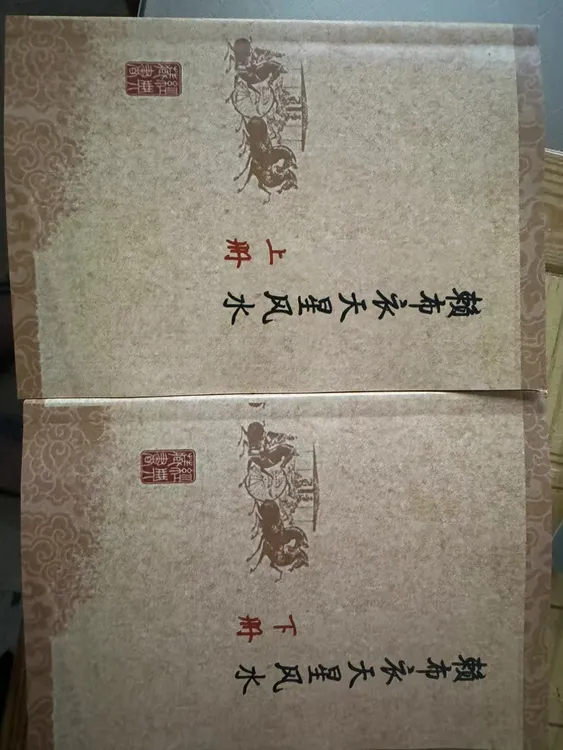 賴布衣天星风水
上册
賴布衣天星风水
下册